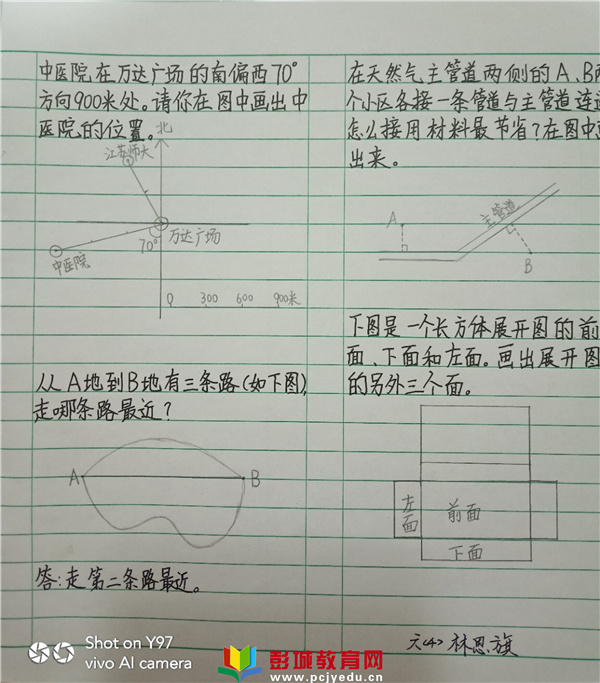 中医院在万达广场的南偏西70°
方向900米处。请你在图中画出中
医院的位置。
北
江苏师大
70°
万达广场
中医院
0 300 600 900米
从A地到B地有三条路(如下图),
走哪条路最近?
A
B
答:走第二条路最近。
在天然气主管道两侧的A、B两
个小区各接一条管道与主管道连
怎么接用材料最节省?在图中
出来。
主管道
A
B
下图是一个长方体展开图的前
面、下面和左面。画出展开图
的另外三个面。
左面
前面
下面
六(4) 林思旗
Shot on Y97
vivo AI camera
彭城教育网
www.pcjyedu.cn